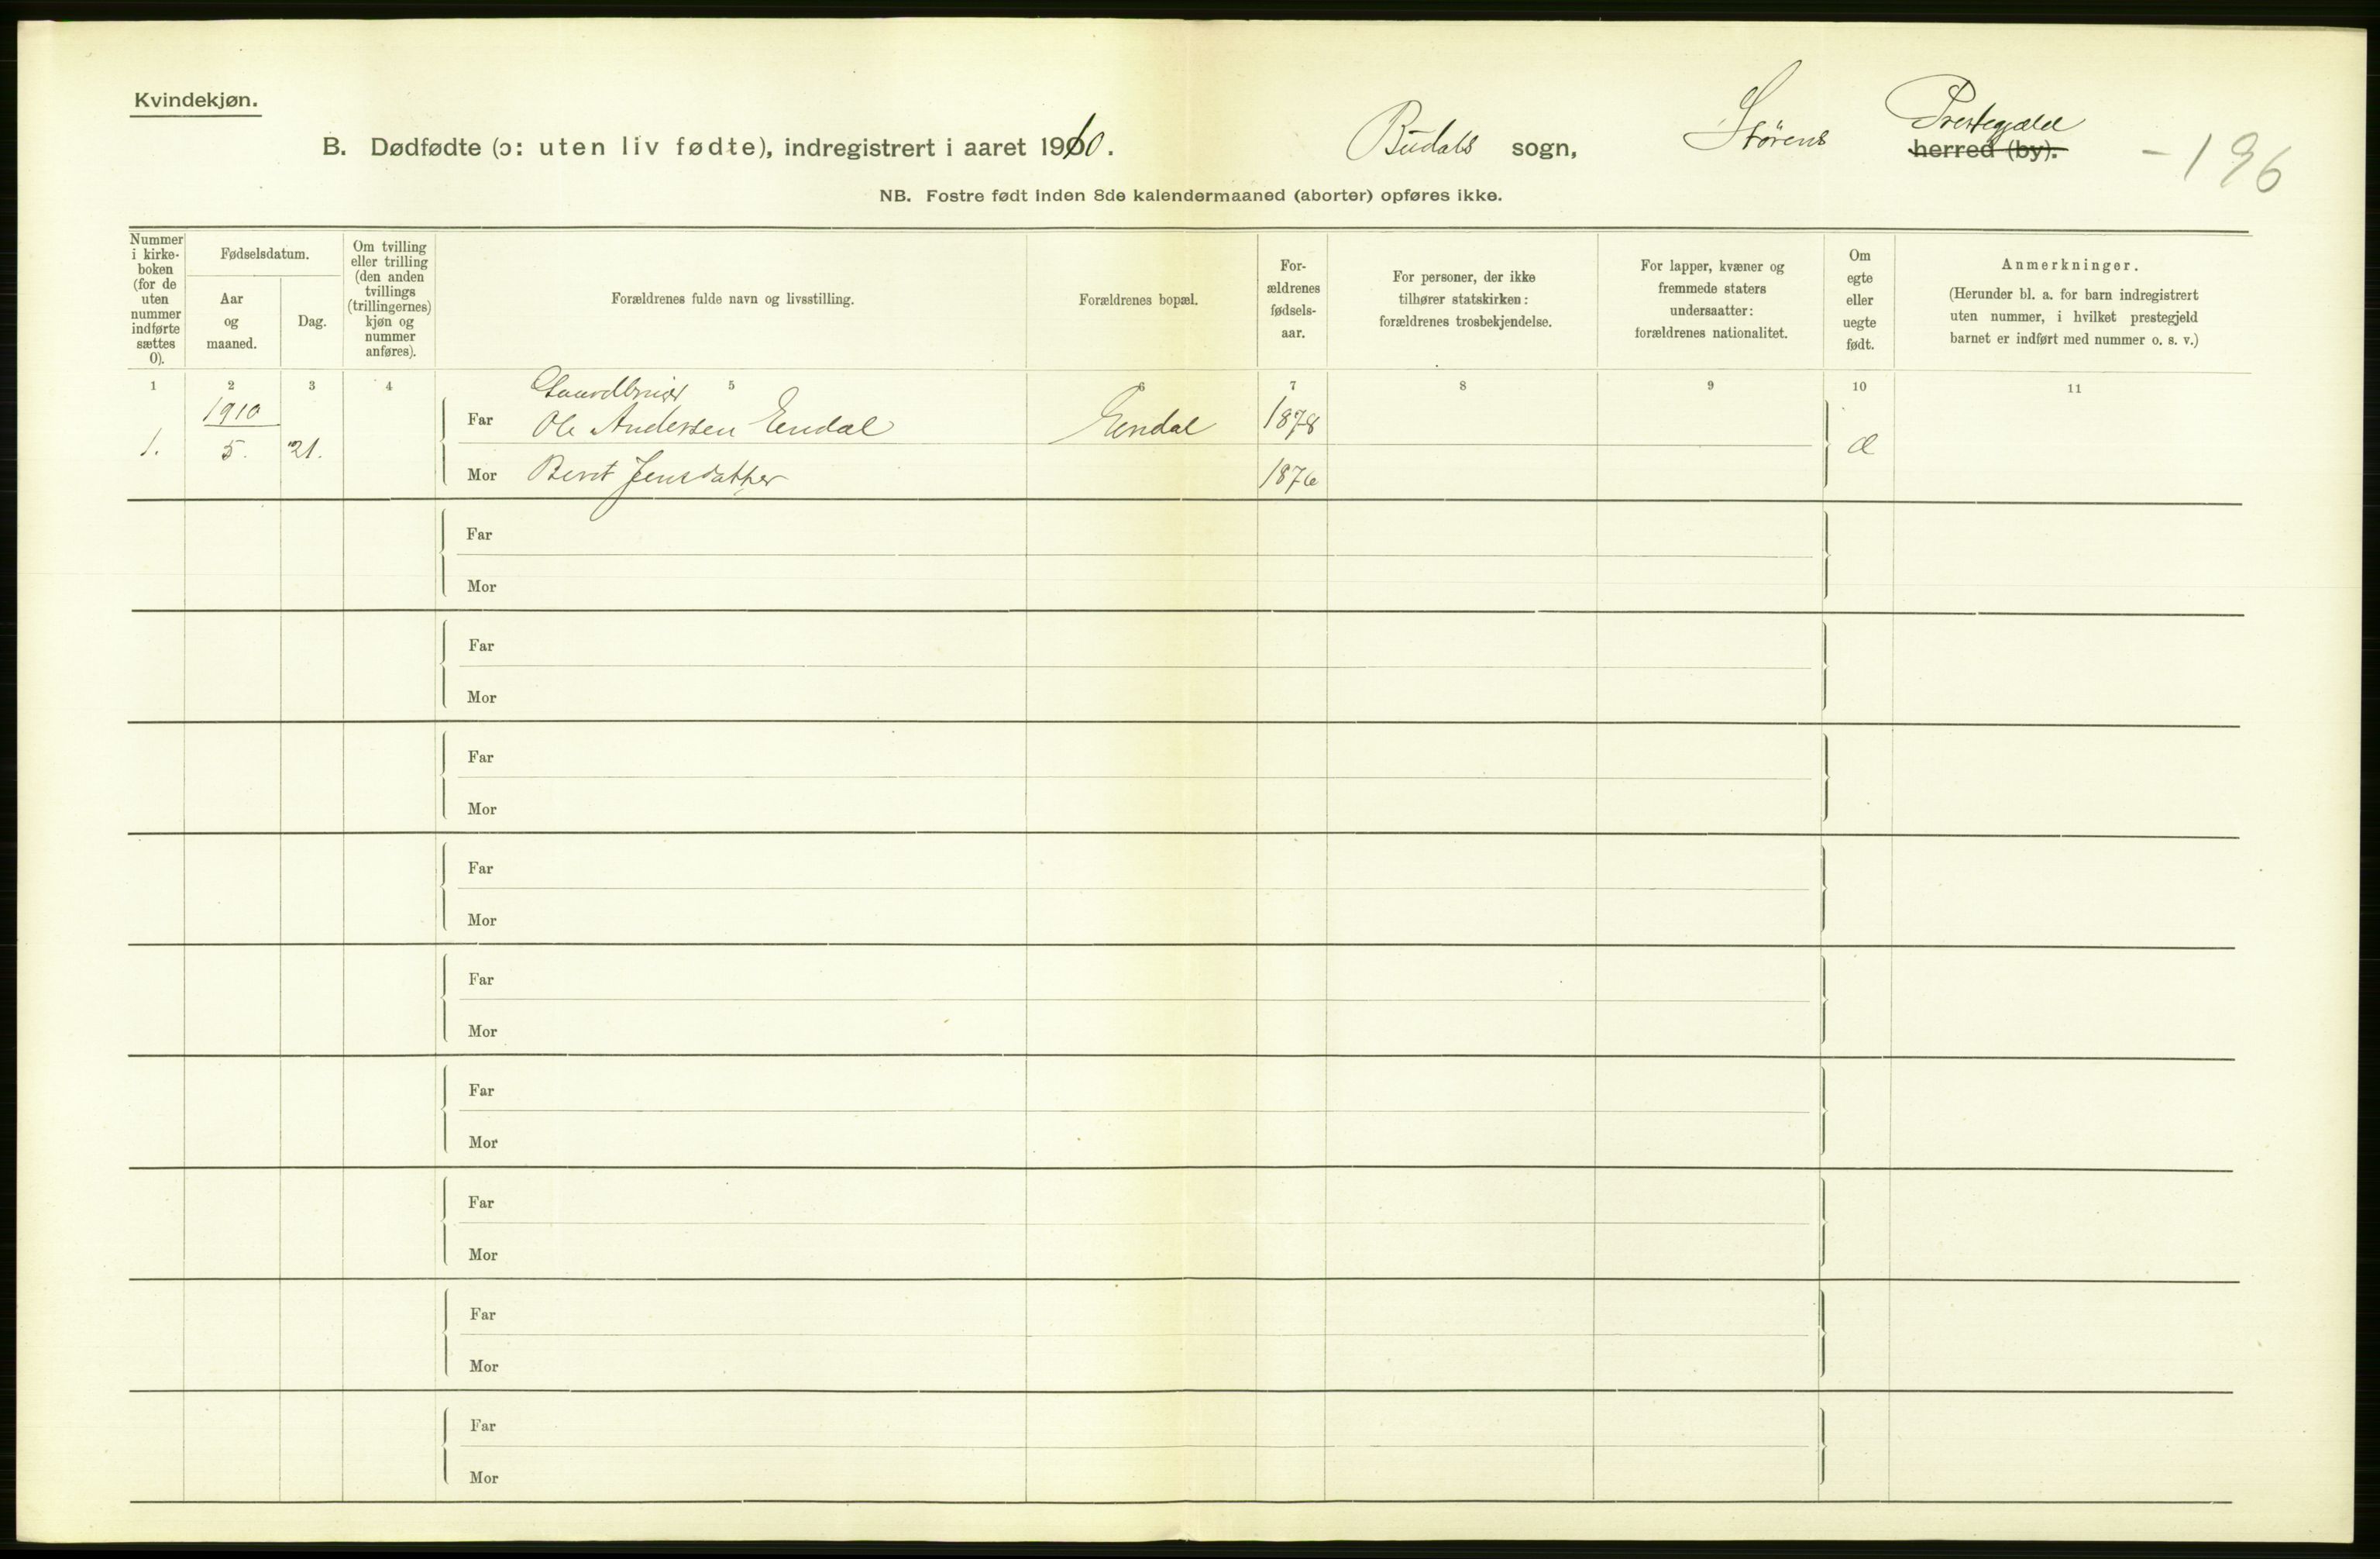 Kvindekjøn.
B. Dødfødte (ɔ: uten liv fødte), indregistrert i aaret 1910.
Budals sogn, Størens Prestegjæld herred (by). - 196
NB. Fostre født inden 8de kalendermaaned (aborter) opføres ikke.
Nummer
i kirke-
boken
(for de
uten
nummer
indførte
sættes
0).
Fødselsdatum.
Aar
og
maaned.
Dag.
Om tvilling
eller trilling
(den anden
tvillings
(trillingernes)
kjøn og
nummer
anføres).
Forældrenes fulde navn og livsstilling.
Forældrenes bopæl.
For-
ældrenes
fødsels-
aar.
For personer, der ikke
tilhører statskirken:
forældrenes trosbekjendelse.
For lapper, kvæner og
fremmede staters
undersaatter:
forældrenes nationalitet.
Om
egte
eller
uegte
født.
Anmerkninger.
(Herunder bl. a. for barn indregistrert
uten nummer, i hvilket prestegjeld
barnet er indført med nummer o. s. v.)
1 2 3 4 5 6 7 8 9 10 11
1910
Gaardbruger
1. 5. 21. Far Ole Andersen Endal Endal 1878 Æ
Mor Berit Jensdatter 1876
Far
Mor
Far
Mor
Far
Mor
Far
Mor
Far
Mor
Far
Mor
Far
Mor
Far
Mor
Far
Mor